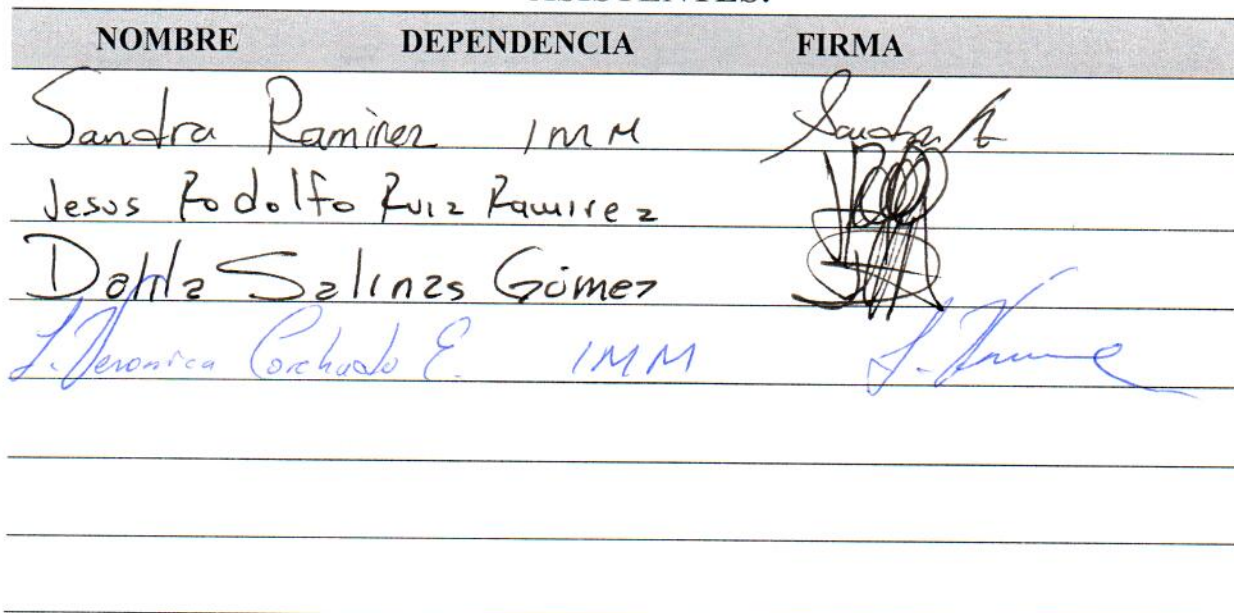 ASISTENTES:
NOMBRE DEPENDENCIA FIRMA
Sandra Ramirez IMM Sandra R
Jesus Rodolfo Ruiz Ramirez
Dahla Salinas Gómez
L. Veronica Corchado E. IMM